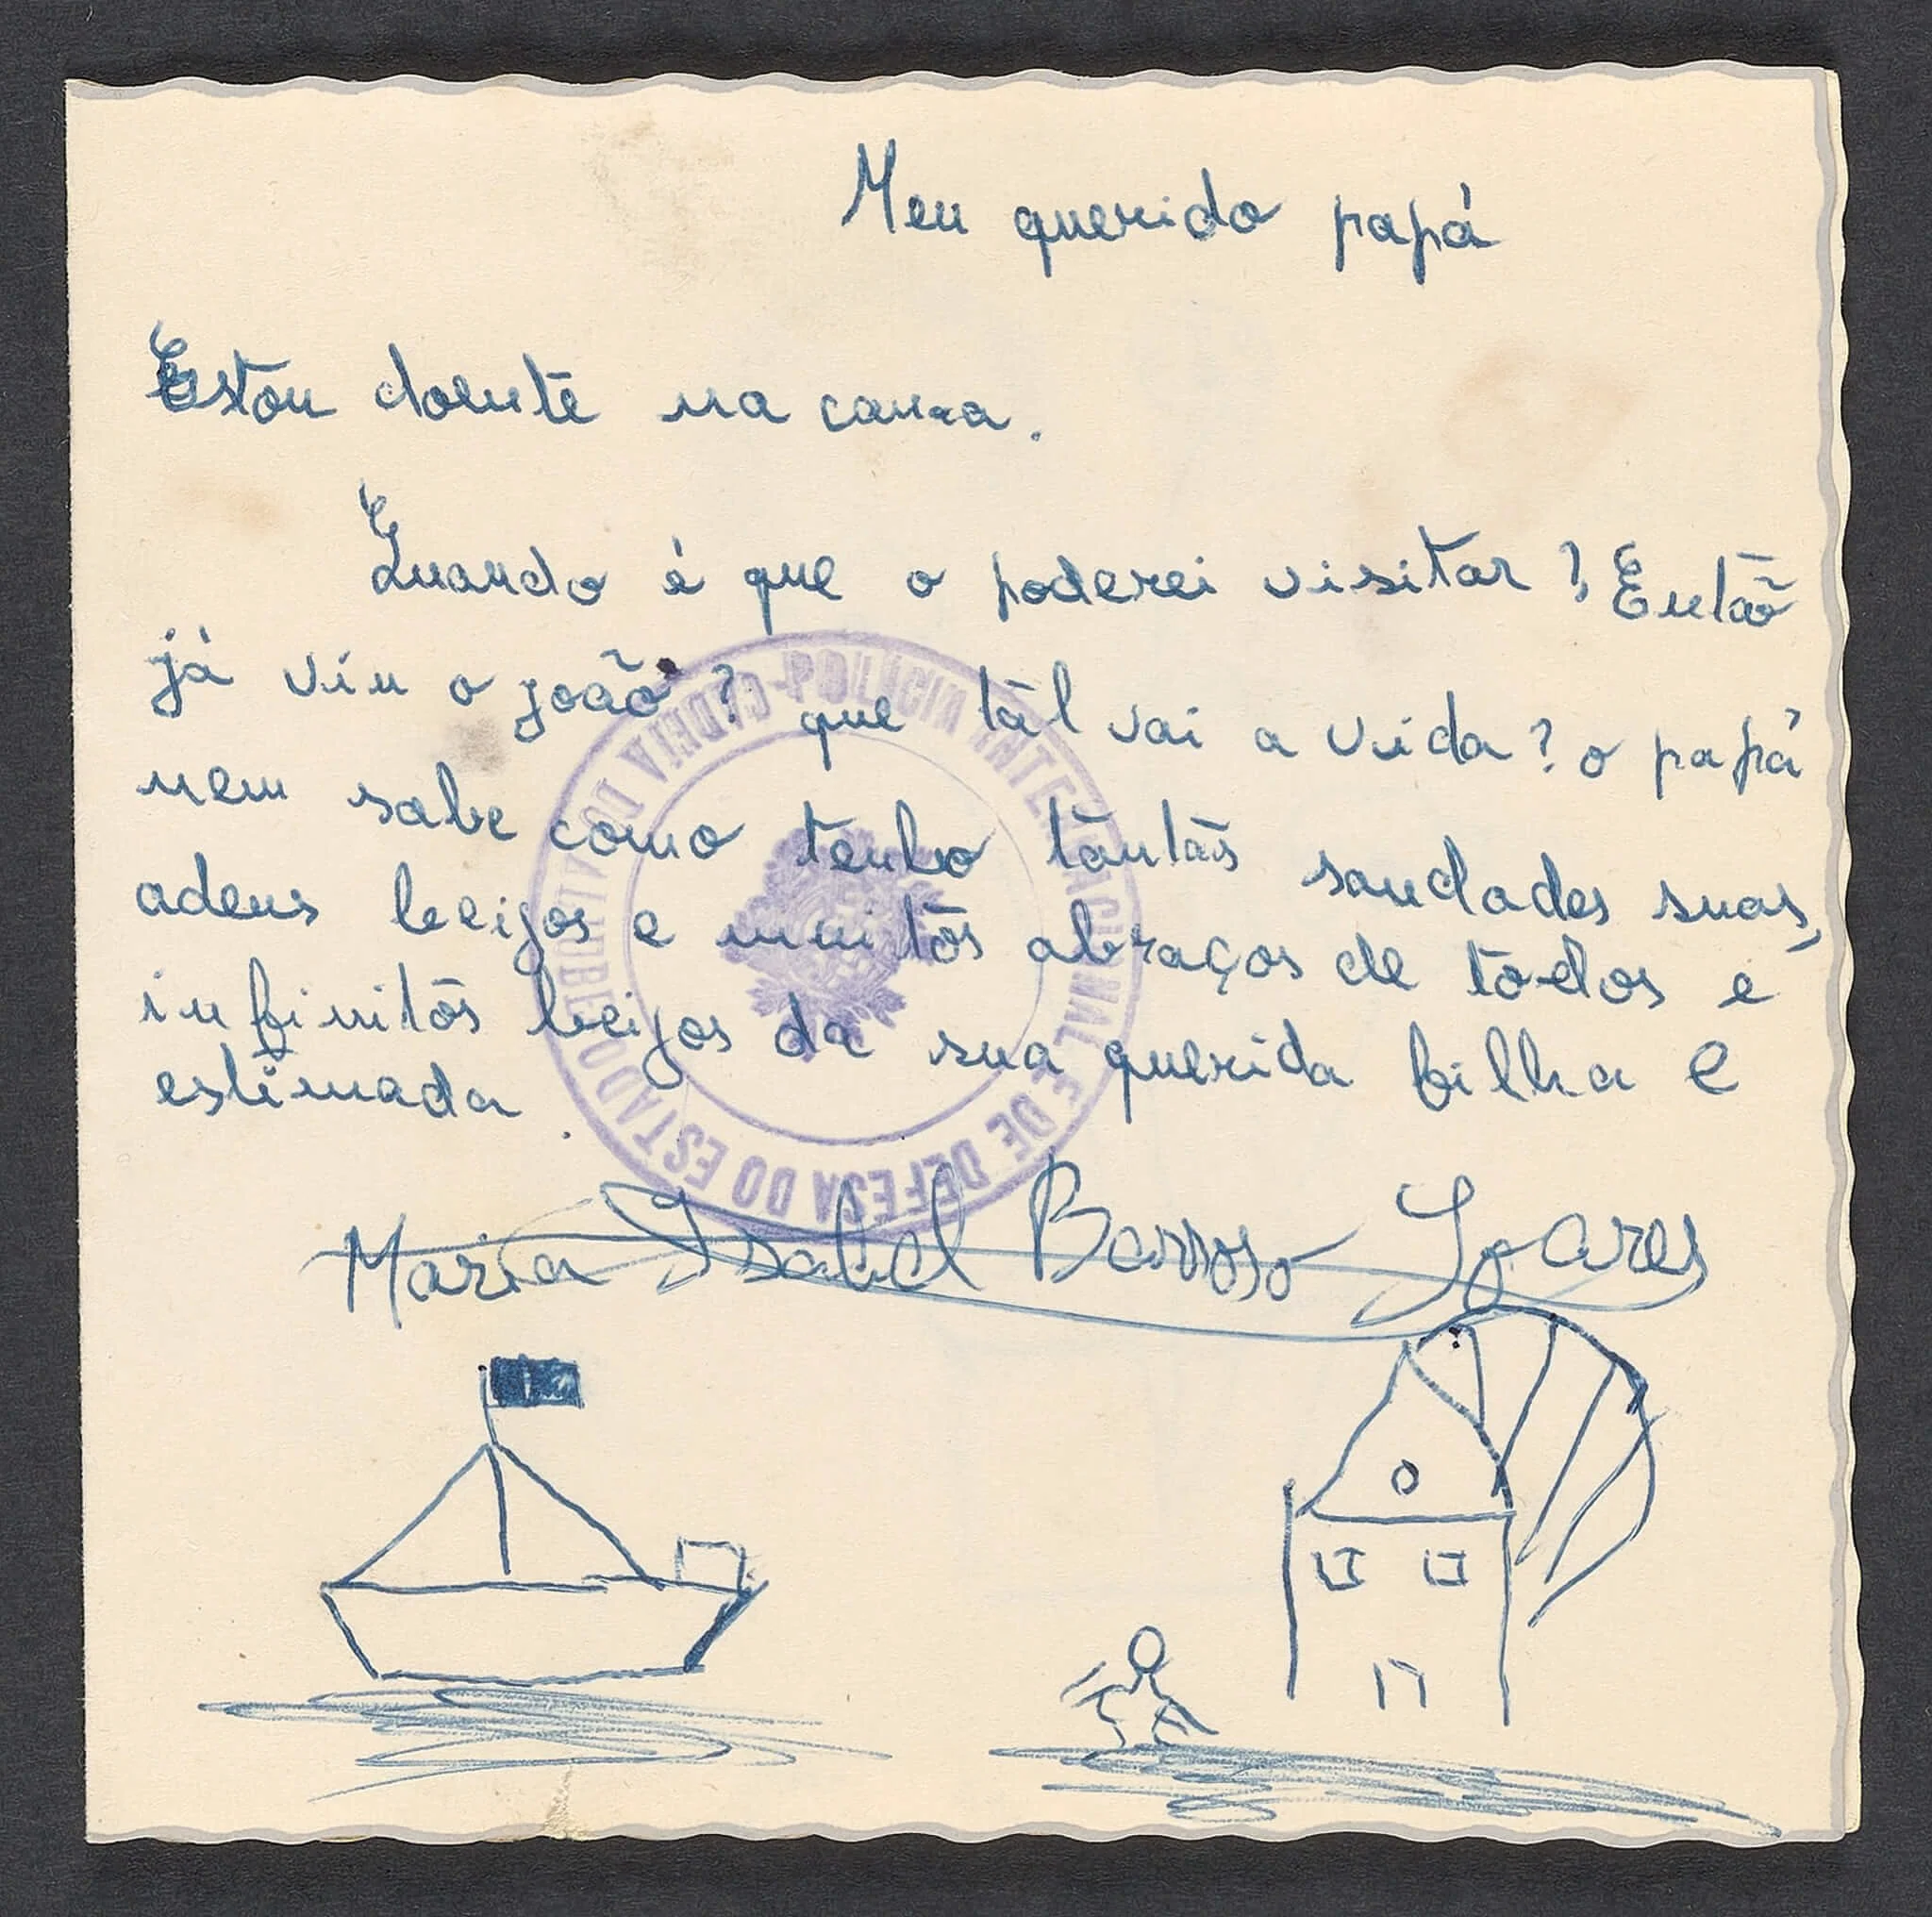 Meu querido papá
Estou doente na cama.
Quando é que o poderei visitar? Então
já viu o joão? que tál vai a vida? o papá
nem sabe como tenho tantas saudades suas,
adeus beijos e muitos abraços de todos e
infinitos beijos da sua querida filha e
estimada
Maria Isabel Barroso Soares
CADEIA DO ALJUBE DO
POLÍCIA INTERNACIONAL E DE DEFESA DO ESTADO